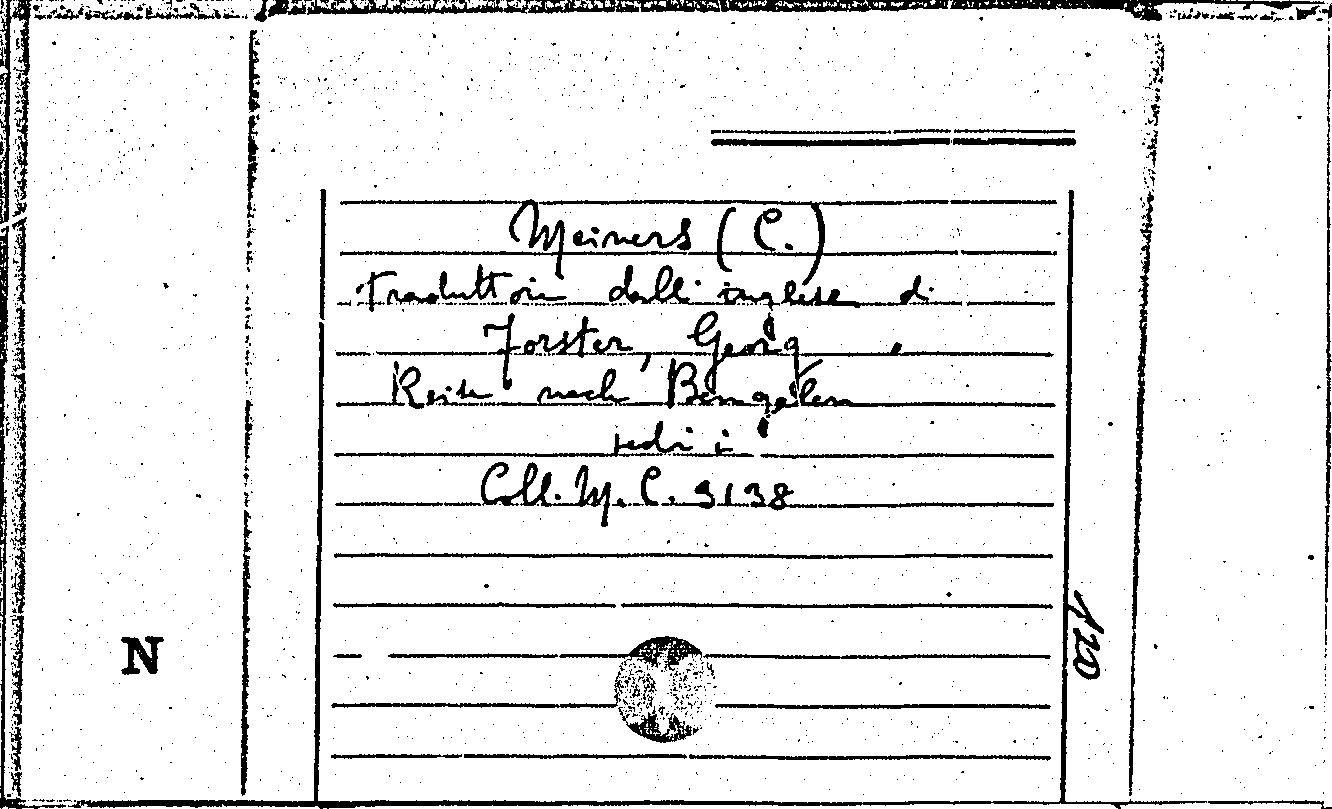 Meiners (C.)
traduttore dall'inglese di
Forster, Georg
Reise nach Bengalen
vedi i
Coll. M. C. 3138
N
120